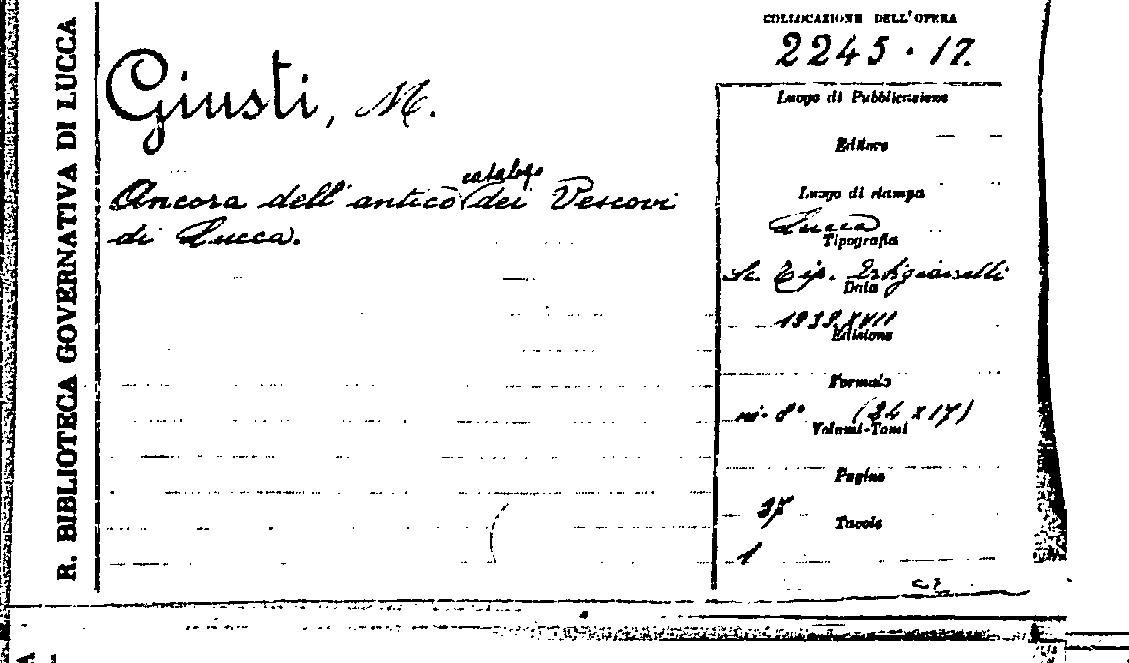 R. BIBLIOTECA GOVERNATIVA DI LUCCA
COLLOCAZIONE DELL'OPERA
2245 · 17.
Giusti, M.
catalogo
Ancora dell'antico dei Vescovi
di Lucca.
Luogo di Pubblicazione
Editore
Luogo di stampa
Lucca
Tipografia
Sc. Tip. Artigianelli
Data
XVII
Edizione
Formato
in-8° (24 x 17)
Volumi-Tomi
Pagine
Tavole
1